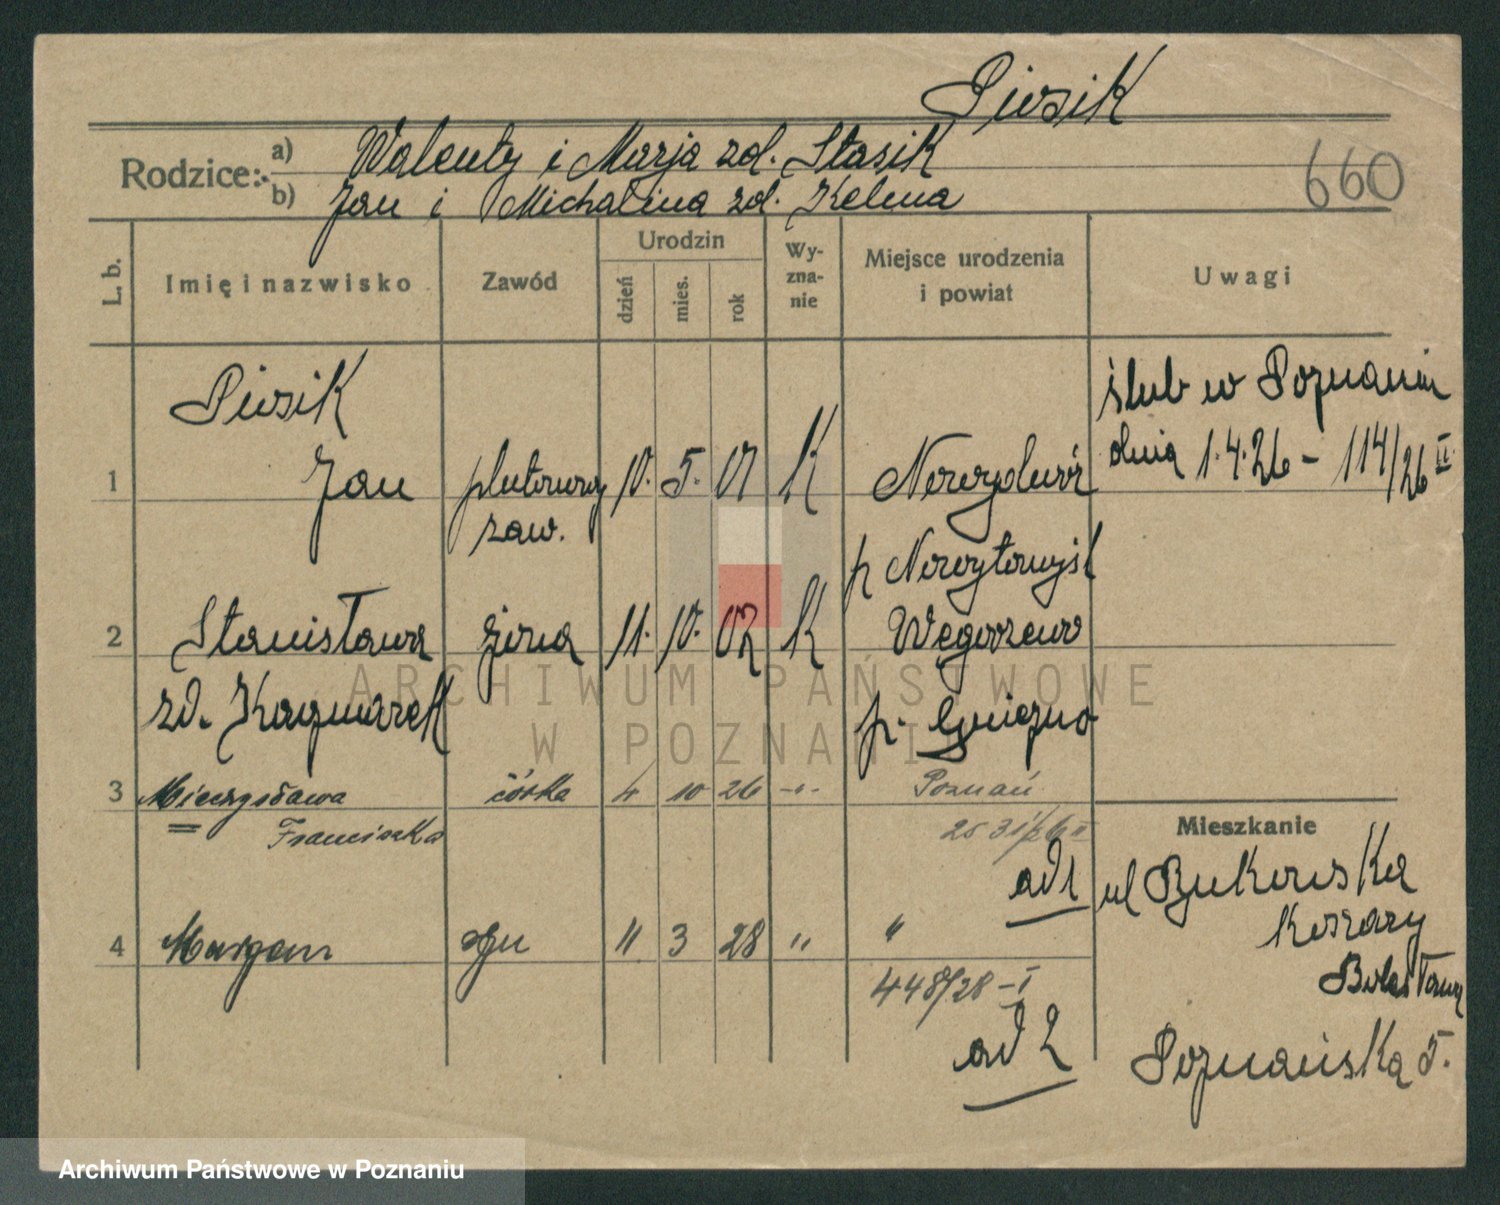 Piosik
Rodzice: a) Walenty i Marja zd. Stasik
b) Jan i Michalina zd. Kelma
660
L. b.
Imię i nazwisko
Zawód
Urodzin
dzień
mies.
rok
Wy-
zna-
nie
Miejsce urodzenia
i powiat
Uwagi
Piosik
1 Jan plutonowy 10. 5. 01 K Nowydwór
zaw.
p Nowytomyśl
ślub w Poznaniu
dnia 1.4.26 – 114/26 II
2 Stanisława żona 11. 10. 02 K Węgorzewo
zd. Kaczmarek p. Gniezno
3 Mieczysława córka 4 10 26 -„- Poznań
Franciszka
4 Marjan syn 11 3 28 „ „
448/28 – I
Mieszkanie
ad 1 ul Bukowska
Koszary
ad 2 Poznańska 5.
ARCHIWUM PAŃSTWOWE
W POZNANIU
Archiwum Państwowe w Poznaniu